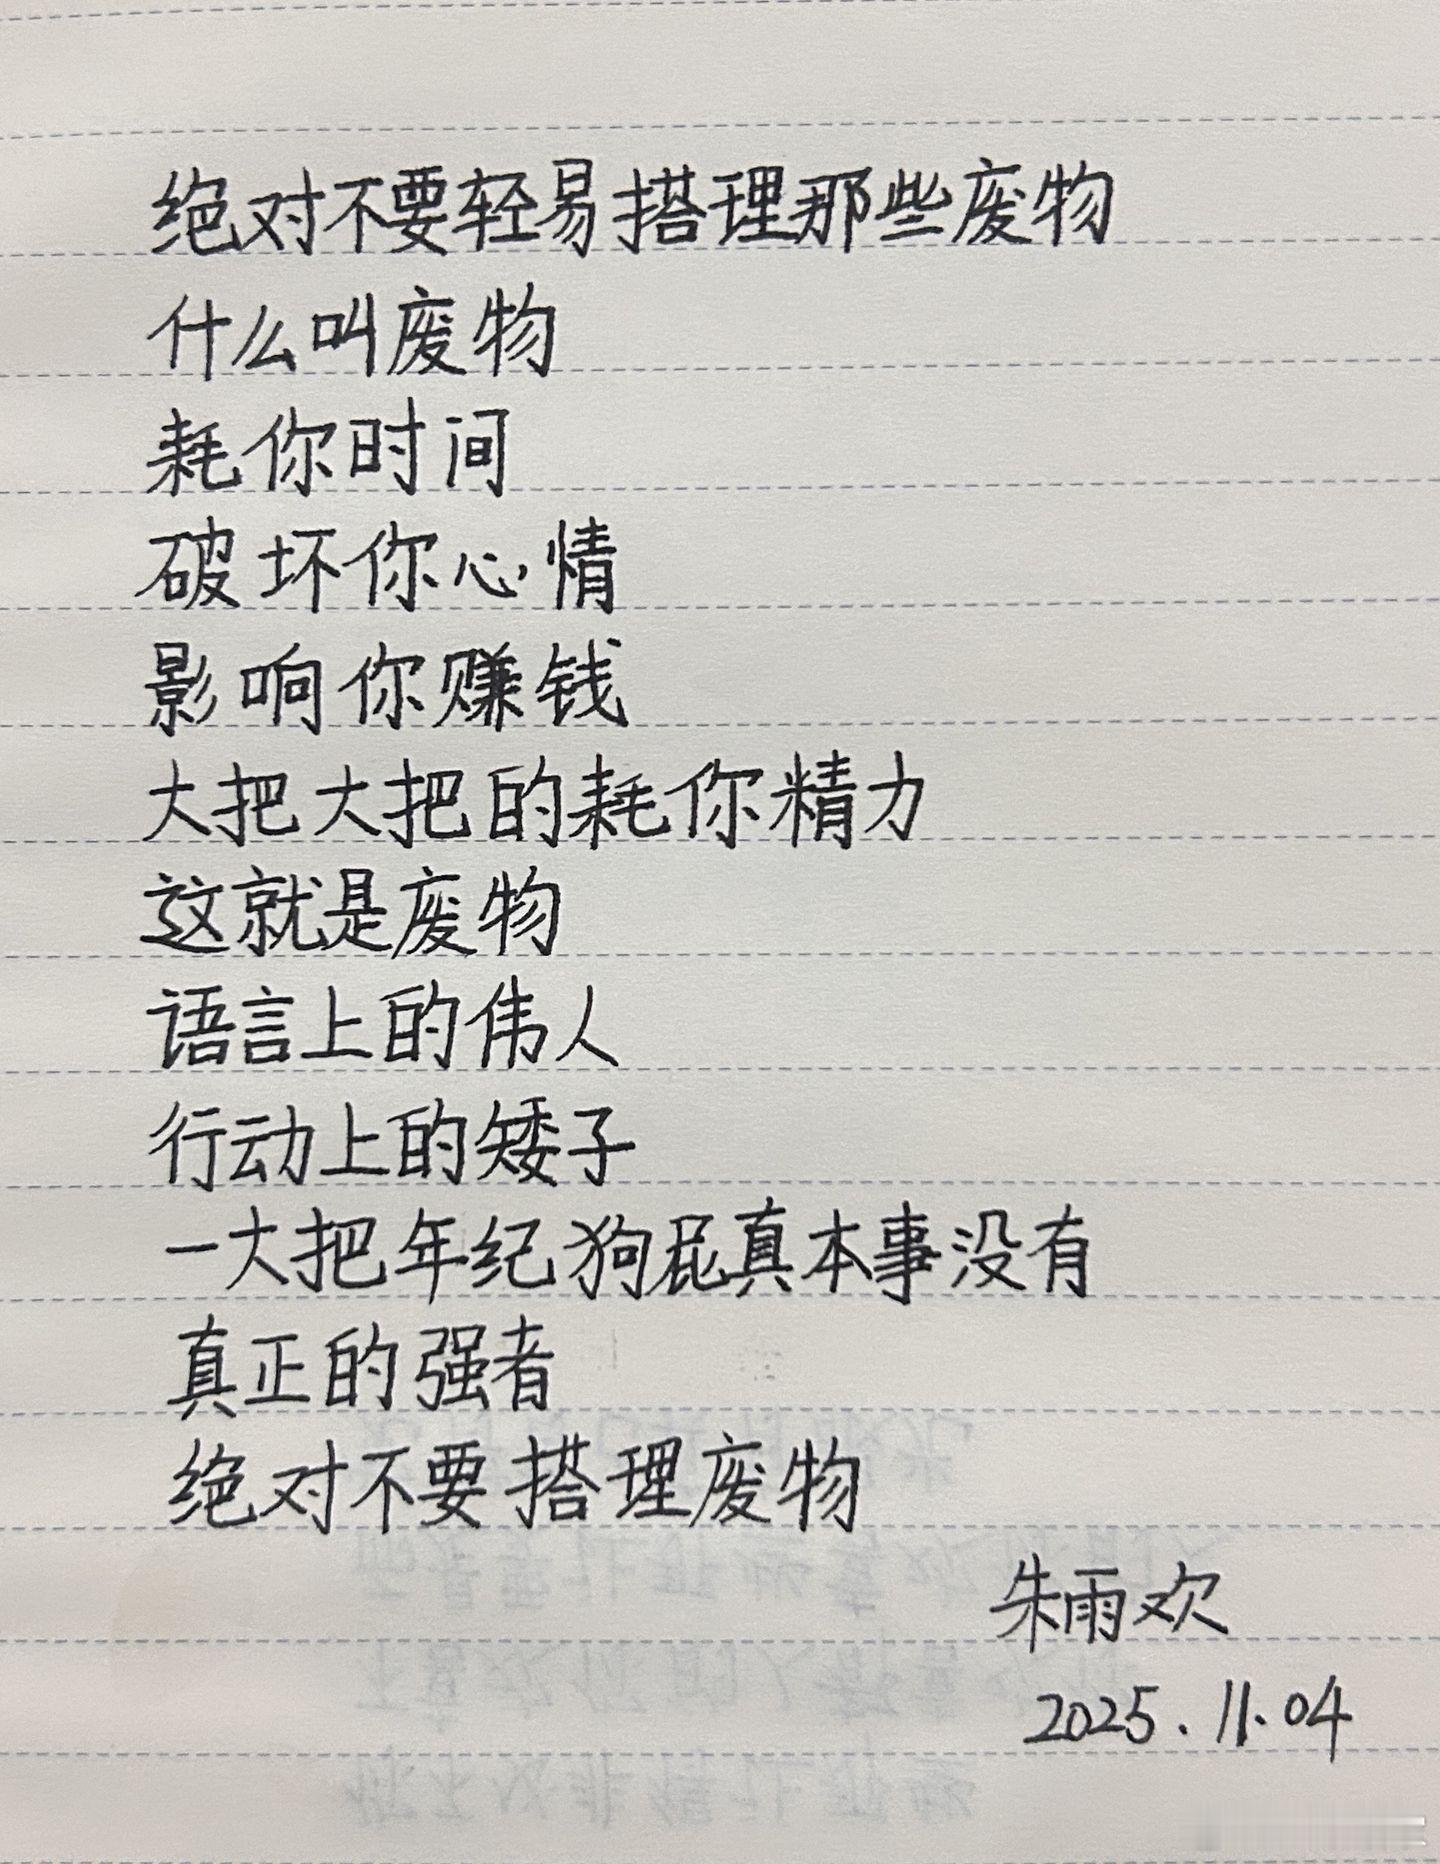 绝对不要轻易搭理那些废物
什么叫废物
耗你时间
破坏你心情
影响你赚钱
大把大把的耗你精力
这就是废物
语言上的伟人
行动上的矮子
一大把年纪狗屁真本事没有
真正的强者
绝对不要搭理废物
朱雨欢
2025.11.04